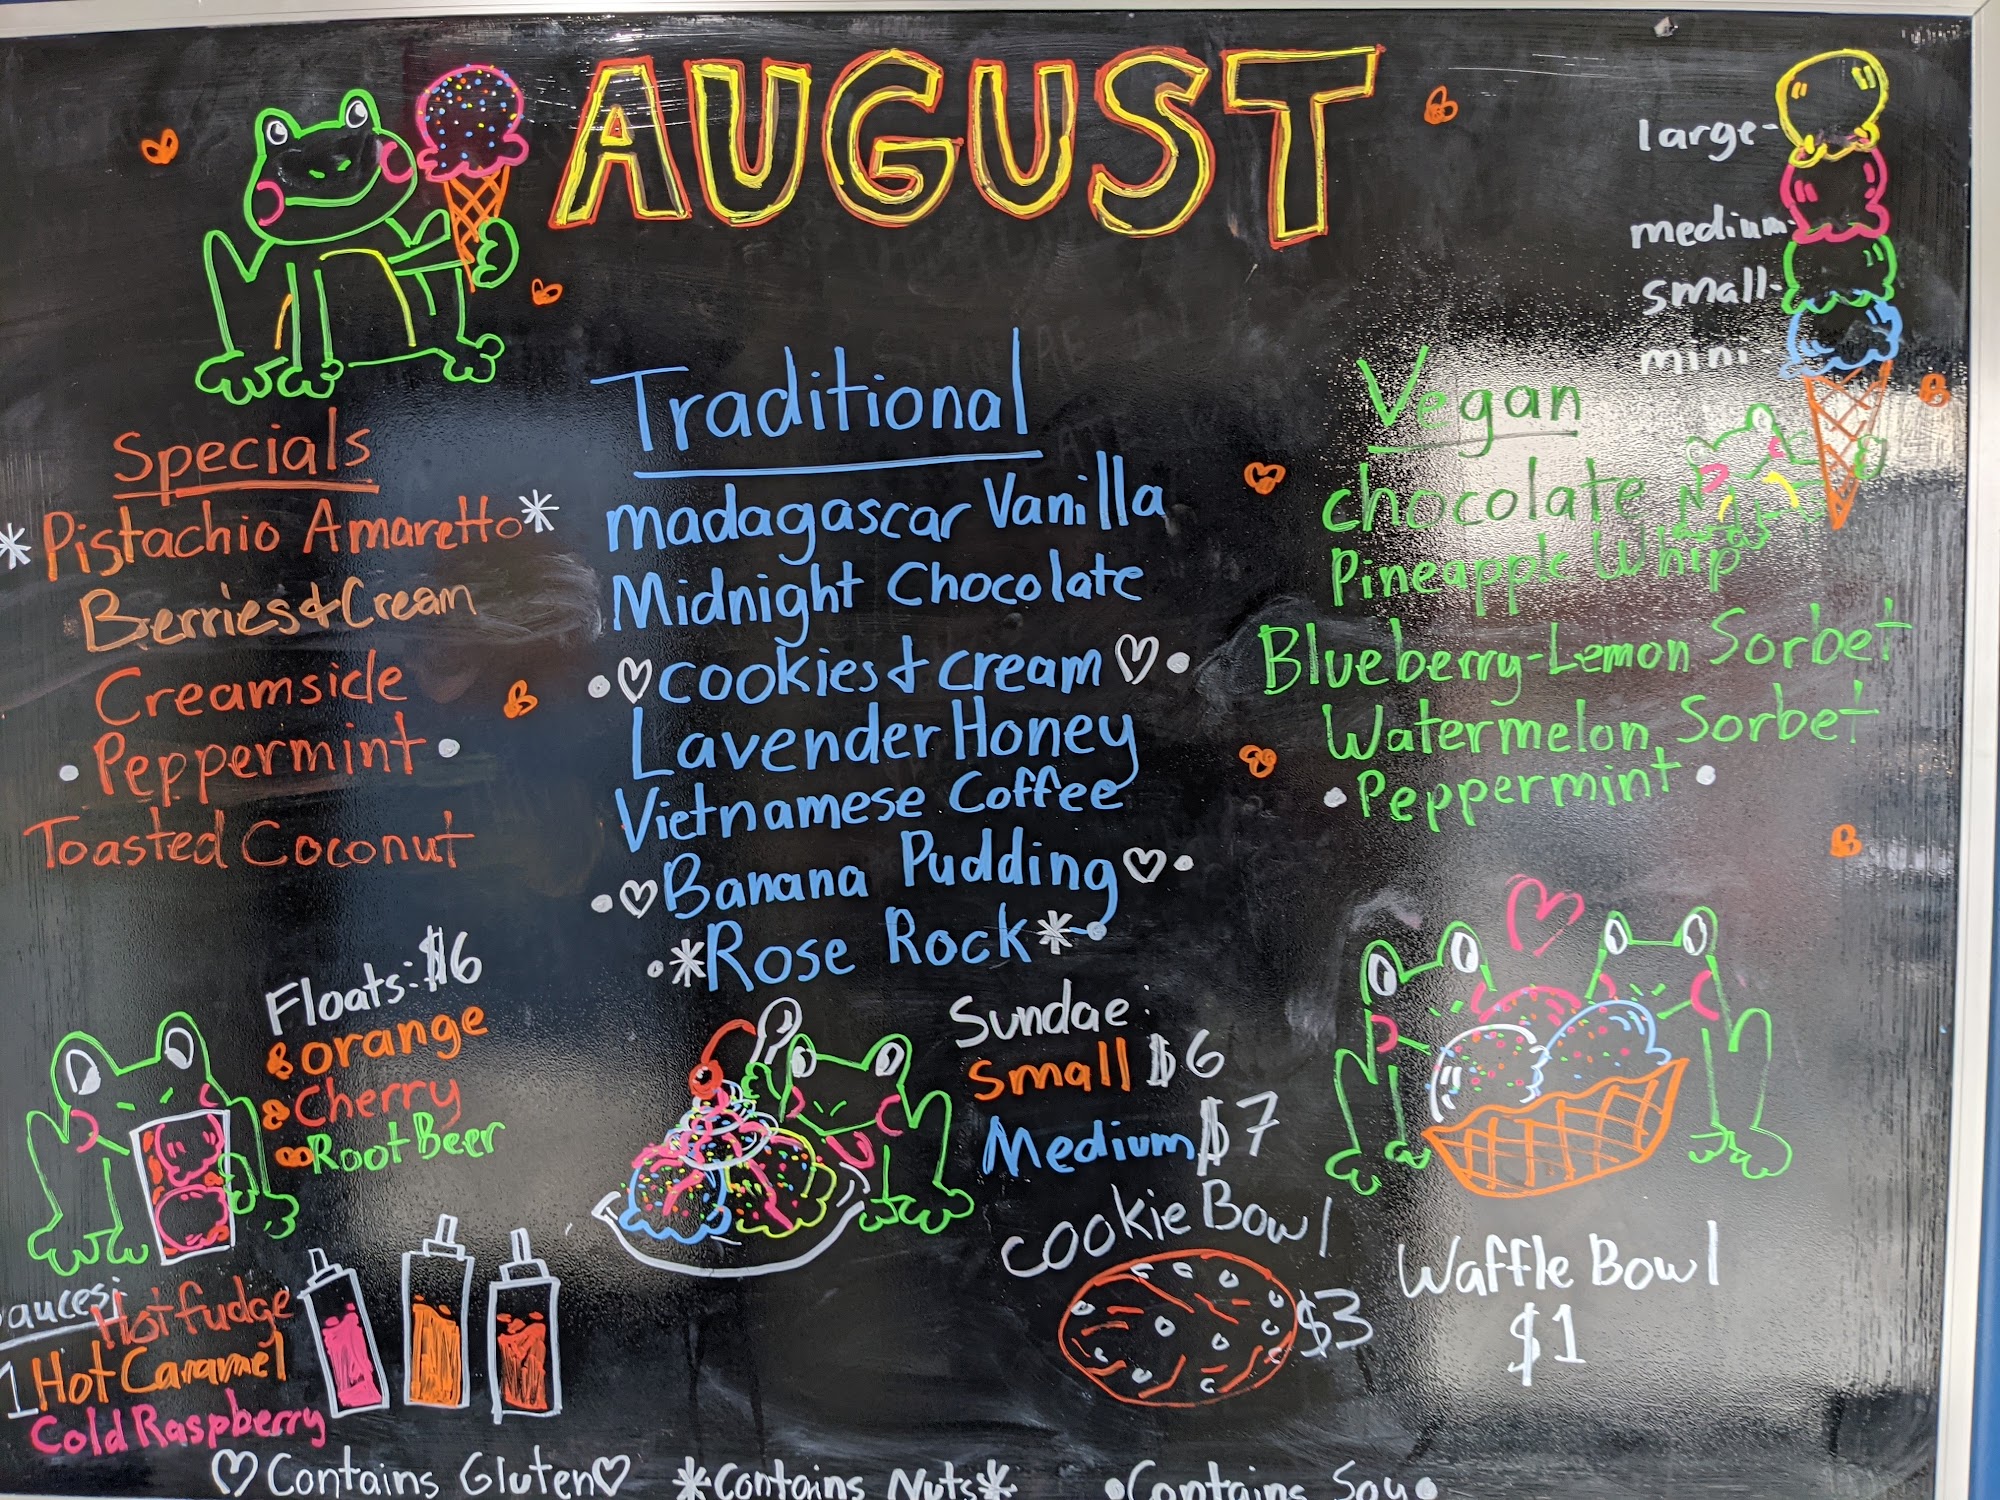 AUGUST
large-
medium-
small-
mini-
Specials
*Pistachio Amaretto*
Berries & Cream
Creamsicle
•Peppermint•
Toasted Coconut
Traditional
madagascar Vanilla
Midnight Chocolate
•♡cookies & cream♡•
Lavender Honey
Vietnamese Coffee
•♡Banana Pudding♡•
•*Rose Rock*•
Vegan
chocolate
Pineapple Whip
Blueberry-Lemon Sorbet
Watermelon Sorbet
•Peppermint•
Floats: $6
orange
Cherry
Root Beer
Sundae:
Small $6
Medium $7
Cookie Bowl
$3
Waffle Bowl
$1
auces:
Hot fudge
1 Hot Caramel
Cold Raspberry
♡Contains Gluten♡ *Contains Nuts* •Contains Soy•